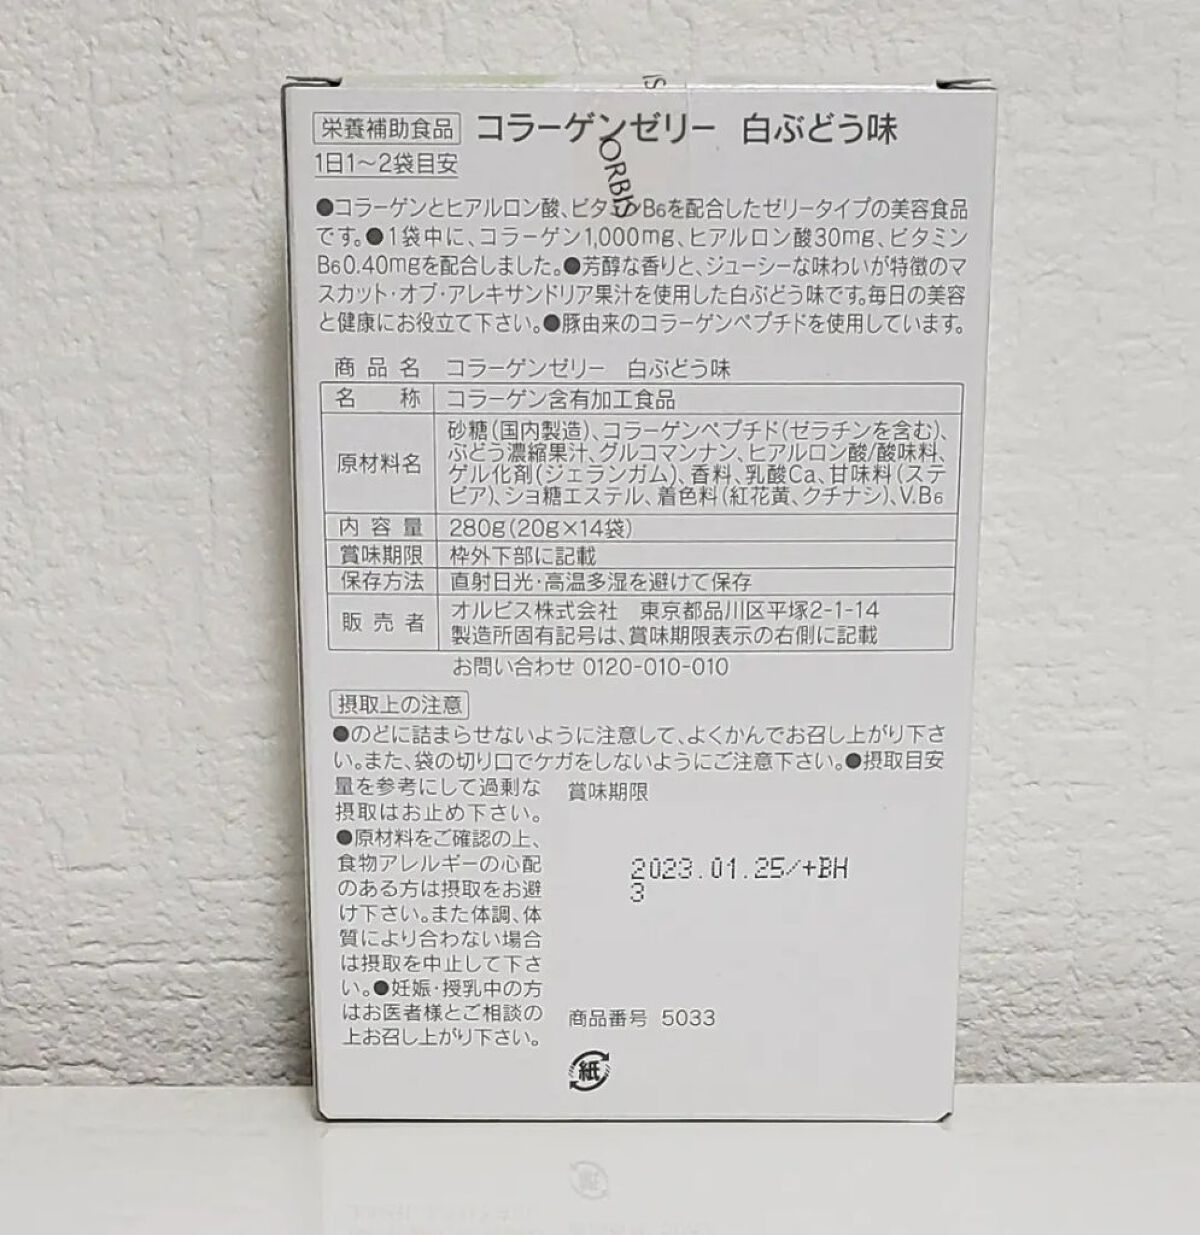 栄養補助食品 コラーゲンゼリー 白ぶどう味
1日1～2袋目安
ORBIS
●コラーゲンとヒアルロン酸、ビタミンB6を配合したゼリータイプの美容食品
です。●1袋中に、コラーゲン1,000mg、ヒアルロン酸30mg、ビタミン
B6 0.40mgを配合しました。●芳醇な香りと、ジューシーな味わいが特徴のマ
スカット・オブ・アレキサンドリア果汁を使用した白ぶどう味です。毎日の美容
と健康にお役立て下さい。●豚由来のコラーゲンペプチドを使用しています。
商品名 コラーゲンゼリー 白ぶどう味
名称 コラーゲン含有加工食品
原材料名 砂糖(国内製造)、コラーゲンペプチド(ゼラチンを含む)、
ぶどう濃縮果汁、グルコマンナン、ヒアルロン酸/酸味料、
ゲル化剤(ジェランガム)、香料、乳酸Ca、甘味料(ステ
ビア)、ショ糖エステル、着色料(紅花黄、クチナシ)、V.B6
内容量 280g(20g×14袋)
賞味期限 枠外下部に記載
保存方法 直射日光・高温多湿を避けて保存
販売者 オルビス株式会社 東京都品川区平塚2-1-14
製造所固有記号は、賞味期限表示の右側に記載
お問い合わせ 0120-010-010
摂取上の注意
●のどに詰まらせないように注意して、よくかんでお召し上がり下さ
い。また、袋の切り口でケガをしないようにご注意下さい。●摂取目安
量を参考にして過剰な
摂取はお止め下さい。
●原材料をご確認の上、
食物アレルギーの心配
のある方は摂取をお避
け下さい。また体調、体
質により合わない場合
は摂取を中止して下さ
い。●妊娠・授乳中の方
はお医者様とご相談の
上お召し上がり下さい。
賞味期限
2023.01.25/+BH
3
商品番号 5033
紙